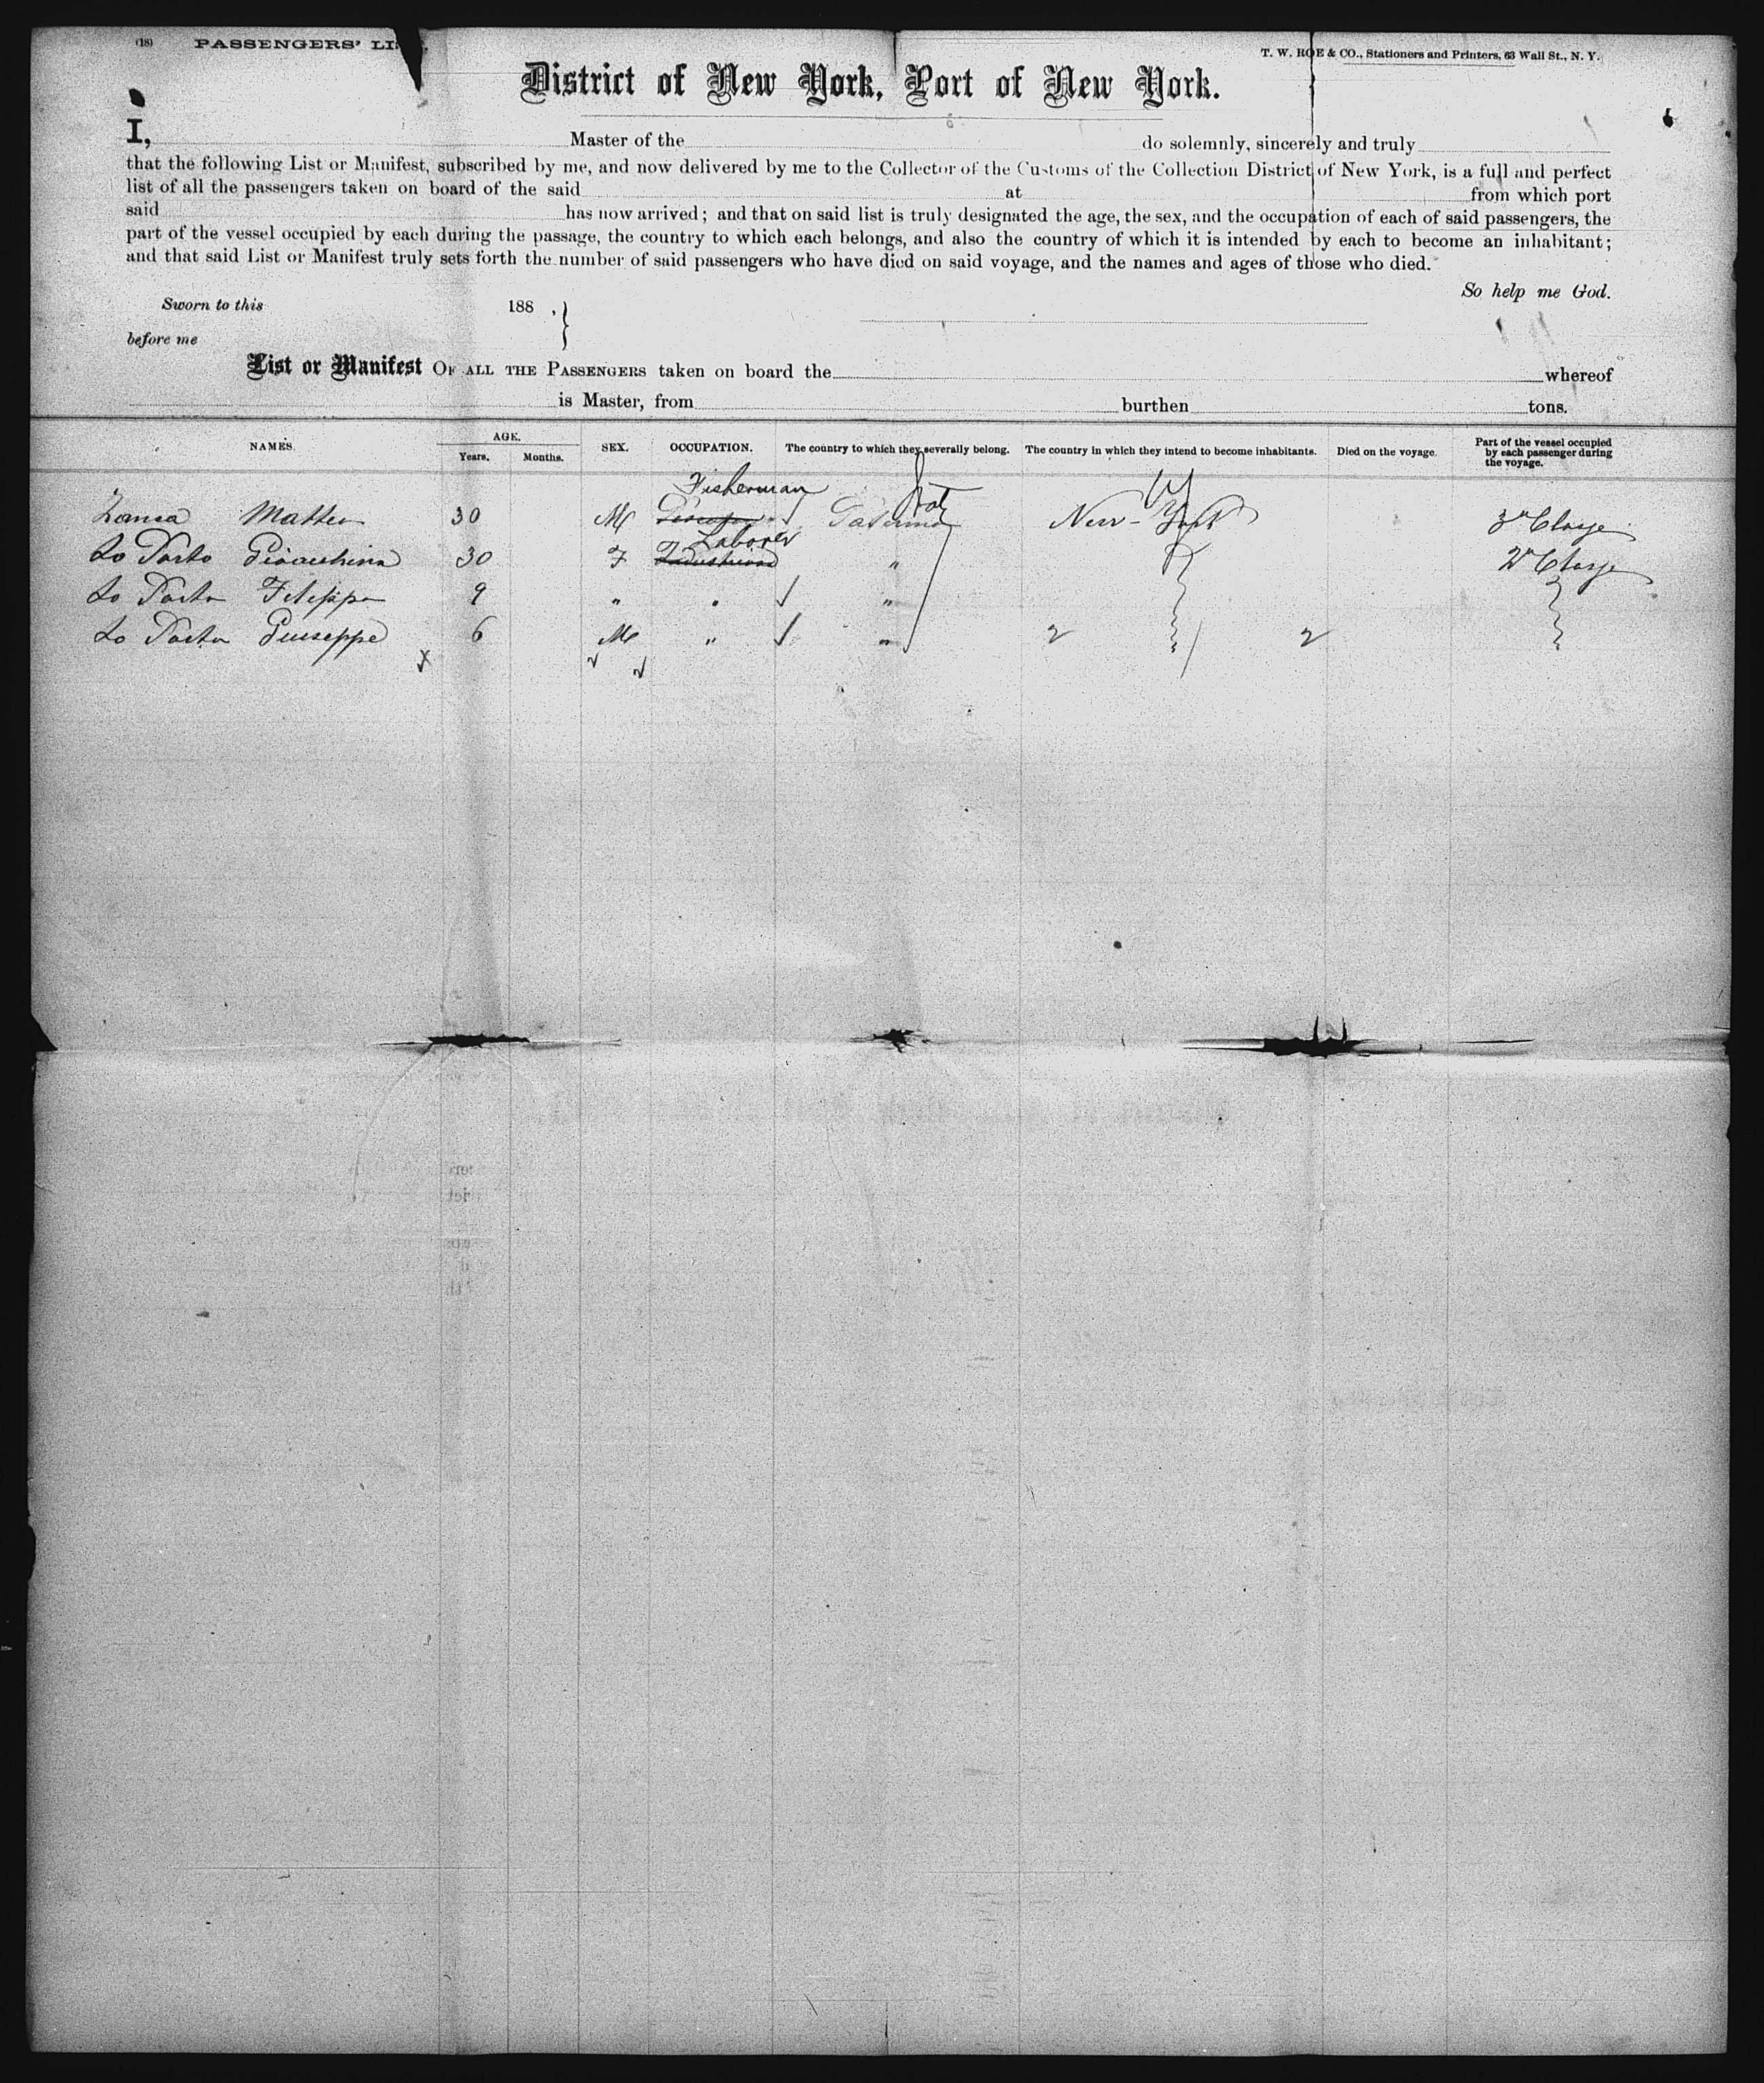 (18) PASSENGERS' LI
T. W. ROE & CO., Stationers and Printers, 63 Wall St., N. Y.
District of New York, Port of New York.
I, Master of the do solemnly, sincerely and truly
that the following List or Manifest, subscribed by me, and now delivered by me to the Collector of the Customs of the Collection District of New York, is a full and perfect
list of all the passengers taken on board of the said at from which port
said has now arrived; and that on said list is truly designated the age, the sex, and the occupation of each of said passengers, the
part of the vessel occupied by each during the passage, the country to which each belongs, and also the country of which it is intended by each to become an inhabitant;
and that said List or Manifest truly sets forth the number of said passengers who have died on said voyage, and the names and ages of those who died.
So help me God.
Sworn to this 188 ,
before me
List or Manifest OF ALL THE PASSENGERS taken on board the whereof
is Master, from burthen tons.
NAMES. AGE. Years. Months. SEX. OCCUPATION. The country to which they severally belong. The country in which they intend to become inhabitants. Died on the voyage. Part of the vessel occupied by each passenger during the voyage.
Fisherman
Matteo 30 M Palermo New-York 3a Classe
Laborer
Lo Porto Gioacchina 30 F Industriosa " 2a Classe
Lo Porto Filippa 9 " " "
Lo Porto Giuseppe 6 M " "